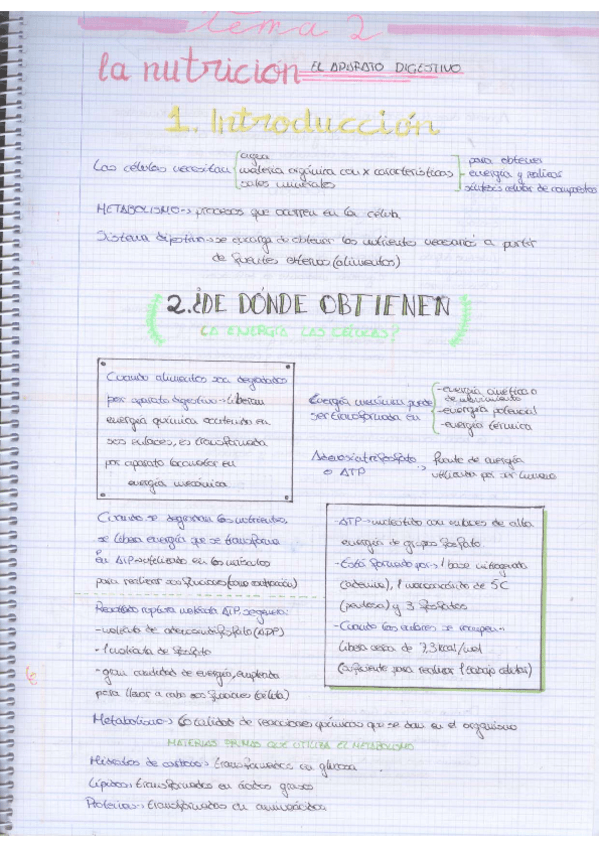 tema 2
la nutrición EL APARATO DIGESTIVO
1. Introducción
Las células necesitan agua
materia orgánica con x características
sales minerales
para obtener
energía y realizar
síntesis celular de compuestos
METABOLISMO → procesos que ocurren en la célula
Sistema digestivo → se encarga de obtener los nutrientes necesarios a partir
de fuentes externas (alimentos)
2. ¿DE DÓNDE OBTIENEN
LA ENERGÍA LAS CÉLULAS?
Cuando alimentos son degradados
por aparato digestivo → liberan
energía química contenida en
sus enlaces, es transformada
por aparato locomotor en
energía mecánica
Energía mecánica puede
ser transformada en
- energía cinética o
de movimiento
- energía potencial
- energía térmica
Adenosintrifosfato
o ATP
→ fuente de energía
utilizada por ser humano
Cuando se degradan los nutrientes,
se libera energía que se transforma
en ATP → utilizado en los músculos
para realizar sus funciones (como contracción)
Reacción ruptura molécula ATP, se genera:
- molécula de adenosindifosfato (ADP)
- 1 molécula de fosfato
- gran cantidad de energía, empleada
para llevar a cabo sus funciones (célula)
- ATP → nucleótido con enlaces de alta
energía de grupos fosfato.
- Está formado por → 1 base nitrogenada
(adenina), 1 monosacárido de 5C
(pentosa) y 3 fosfatos
- Cuando los enlaces se rompen →
libera cerca de 7,3 kcal/mol
(suficiente para realizar 1 trabajo celular)
Metabolismo → totalidad de reacciones químicas que se dan en el organismo
MATERIAS PRIMAS QUE UTILIZA EL METABOLISMO
Hidratos de carbono → transformados en glucosa
Lípidos → transformados en ácidos grasos
Proteínas → transformadas en aminoácidos